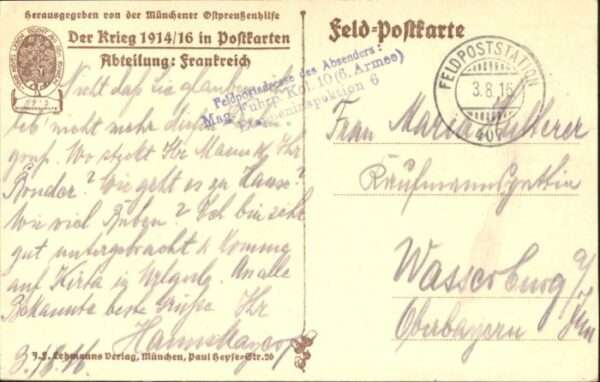 Herausgegeben von der Münchener Ostpreußenhilfe
Der Krieg 1914/16 in Postkarten
Abteilung: Frankreich
Feld-Postkarte
Feldpostadresse des Absenders:
Mag. Fuhrp. Kol. 10 (6. Armee)
Etappeninspektion 6
FELDPOSTSTATION
3.8.16
407
Nicht daß Sie glauben, ich
leb nicht mehr
Wo steckt Ihr Mann u. Ihr
Bruder? Wie geht es zu Hause?
Wie viel Buben? Ich bin sehr
gut untergebracht u. komme
auf Kirta in Urlaub. An alle
Bekannte beste Grüße Ihr
Hanns Mayer
3./8.16.
Frau Maria
Kaufmannsgattin
Wasserburg a/
Inn
Oberbayern
J.F. Lehmanns Verlag, München, Paul Heyse-Str. 26